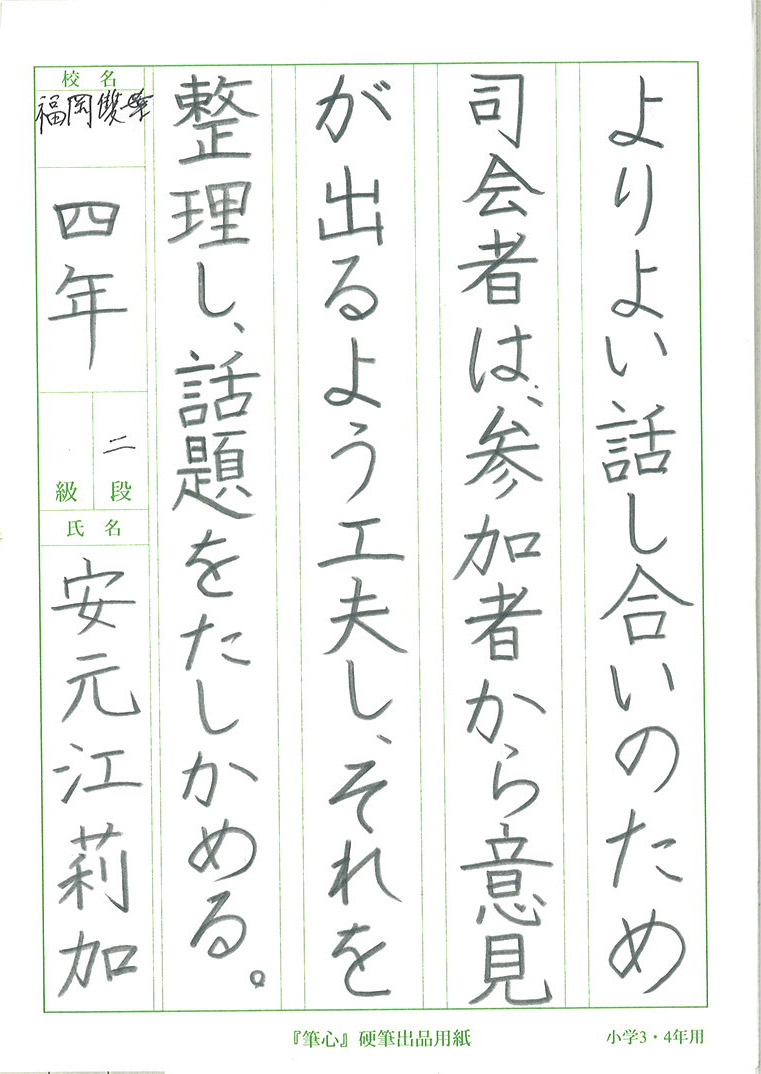 よりよい話し合いのため
司会者は、参加者から意見
が出るよう工夫し、それを
整理し、話題をたしかめる。
校名
福岡雙葉
四年
二
段
級
氏名
安元江莉加
『筆心』硬筆出品用紙
小学3・4年用